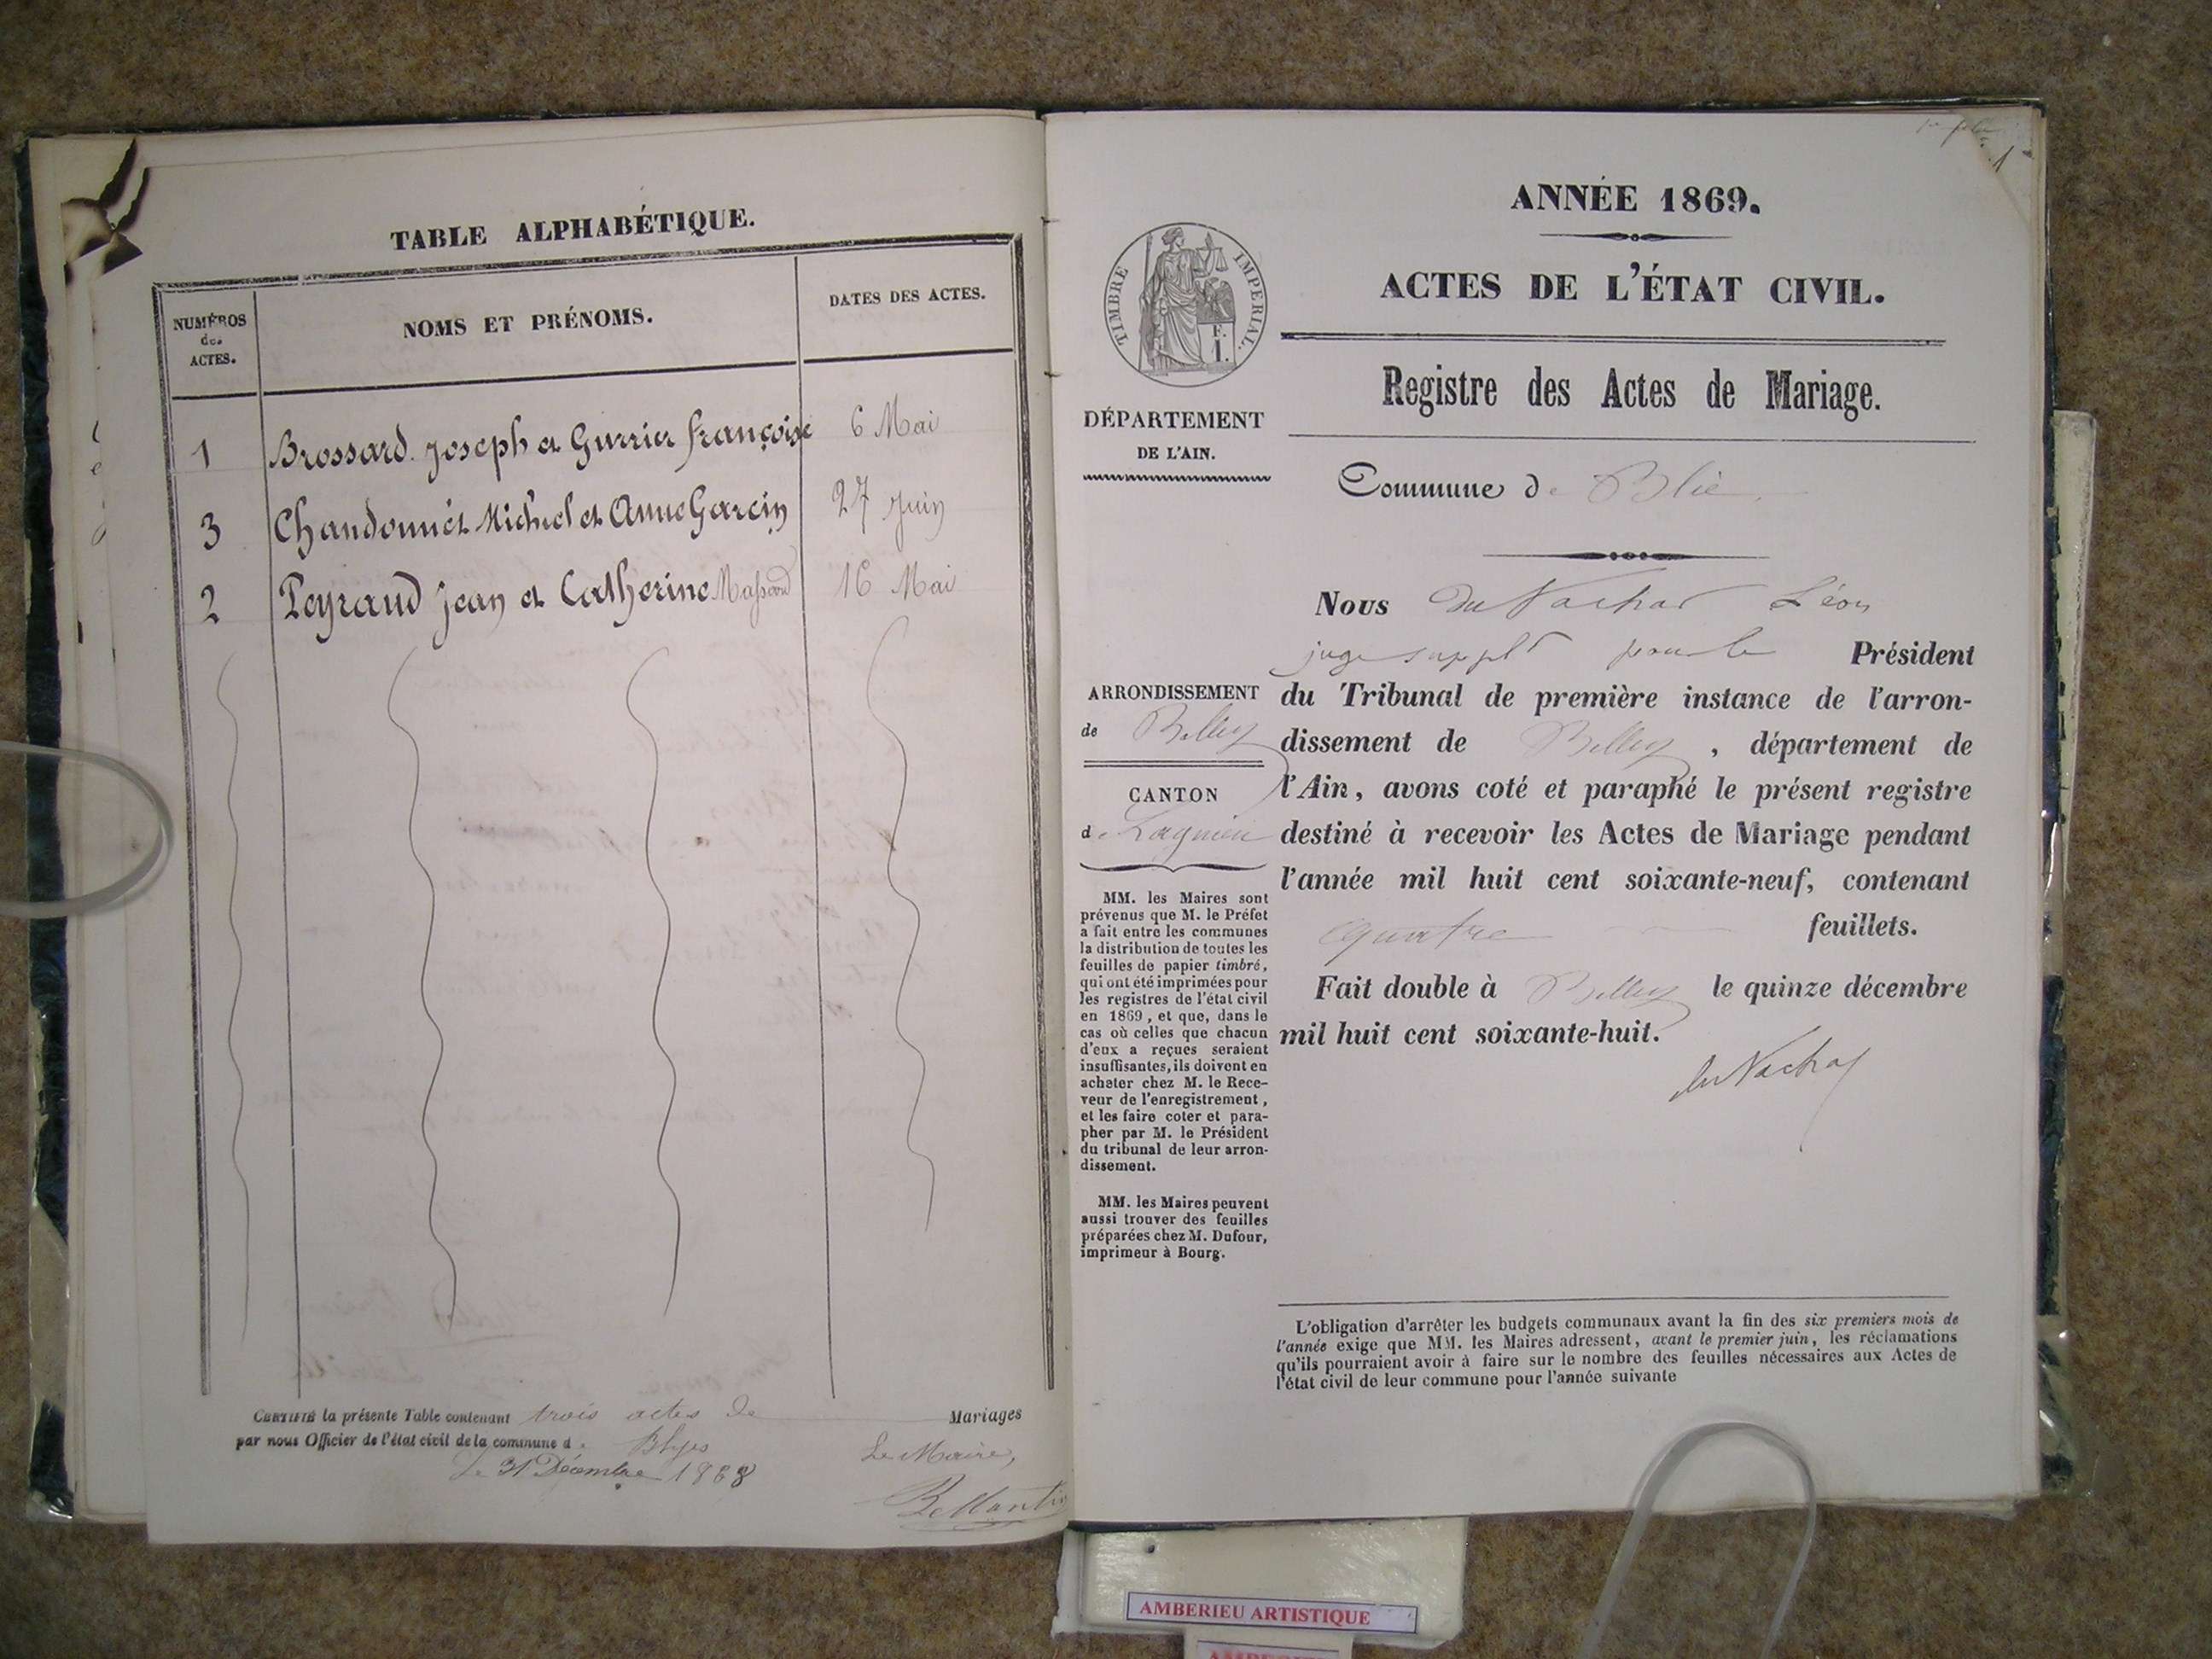 TABLE ALPHABÉTIQUE.
NUMÉROS
des
ACTES.
NOMS ET PRÉNOMS.
DATES DES ACTES.
1 Brossard Joseph et Gurrier françoise 6 Mai
3 Chandonnét Michel et Anne Garcin 27 Juin
2 Peyraud Jean et Catherine Massard 16 Mai
CERTIFIÉ la présente Table contenant trois actes de Mariages
par nous Officier de l'état civil de la commune d Blyes
Le 31 Décembre 1868
Le Maire,
1
ANNÉE 1869.
ACTES DE L'ÉTAT CIVIL.
Registre des Actes de Mariage.
TIMBRE IMPERIAL.
F.
1.
DÉPARTEMENT
DE L'AIN.
Commune de Blie
Nous du Nachat Léon
juge suppt pour le Président
du Tribunal de première instance de l'arron-
dissement de Belley, département de
l'Ain, avons coté et paraphé le présent registre
destiné à recevoir les Actes de Mariage pendant
l'année mil huit cent soixante-neuf, contenant
quatre feuillets.
Fait double à Belley le quinze décembre
mil huit cent soixante-huit.
du Nachat
ARRONDISSEMENT
de Belley
CANTON
de Lagnieu
MM. les Maires sont
prévenus que M. le Préfet
a fait entre les communes
la distribution de toutes les
feuilles de papier timbré,
qui ont été imprimées pour
les registres de l'état civil
en 1869, et que, dans le
cas où celles que chacun
d'eux a reçues seraient
insuffisantes, ils doivent en
acheter chez M. le Rece-
veur de l'enregistrement,
et les faire coter et para-
pher par M. le Président
du tribunal de leur arron-
dissement.
MM. les Maires peuvent
aussi trouver des feuilles
préparées chez M. Dufour,
imprimeur à Bourg.
L'obligation d'arrêter les budgets communaux avant la fin des six premiers mois de
l'année exige que MM. les Maires adressent, avant le premier juin, les réclamations
qu'ils pourraient avoir à faire sur le nombre des feuilles nécessaires aux Actes de
l'état civil de leur commune pour l'année suivante
AMBERIEU ARTISTIQUE